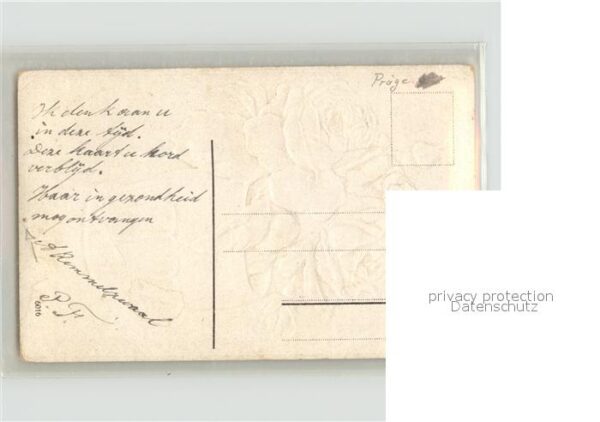 Präge
Ik denk aan u
in deze tijd.
Deze kaart u
verblijd.
Haar in gezondheid
mag ontvangen
P. F.
6016
privacy protection
Datenschutz